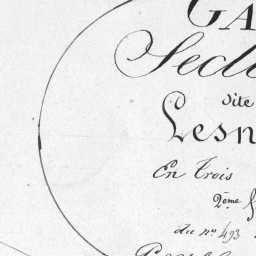 GA
Secti
dite
Lesn
En Trois
2ème
du nº 493